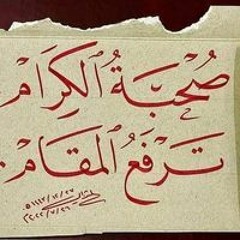 صُحْبَةُ الكِرَامِ
تَرْفَعُ المَقَامَ.